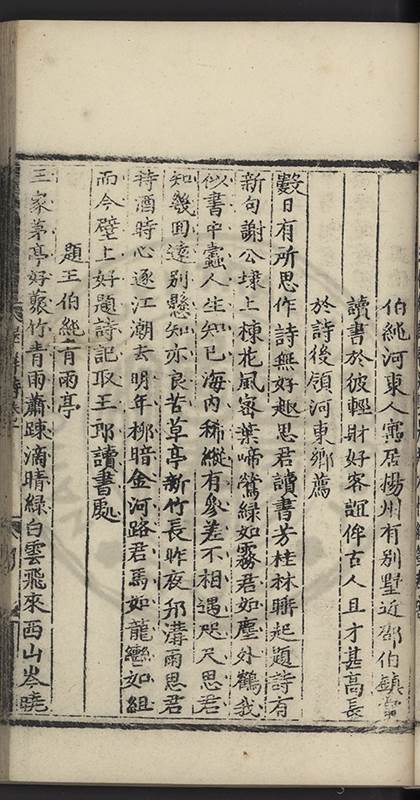 伯純河東人寓居楊州有別墅近邵伯鎮嘗
讀書於彼輕財好客誼侔古人且才甚高長
於詩後領河東鄉薦
數日有所思作詩無好趣思君讀書芳桂林聯起題詩有
新句謝公埭上楝花風密葉啼鶯綠如霧君如塵外鶴我
似書中蠹人生知己海內稀縱有參差不相遇咫尺思君
知幾回遠別懸知亦良苦草亭新竹長昨夜邗溝雨思君
待酒時心逐江潮去明年柳暗金河路君馬如龍轡如組
而今壁上好題詩記取王郎讀書處
題王伯純青雨亭
王家茅亭好裹竹青雨蕭疎滴晴綠白雲飛來西山岑曉